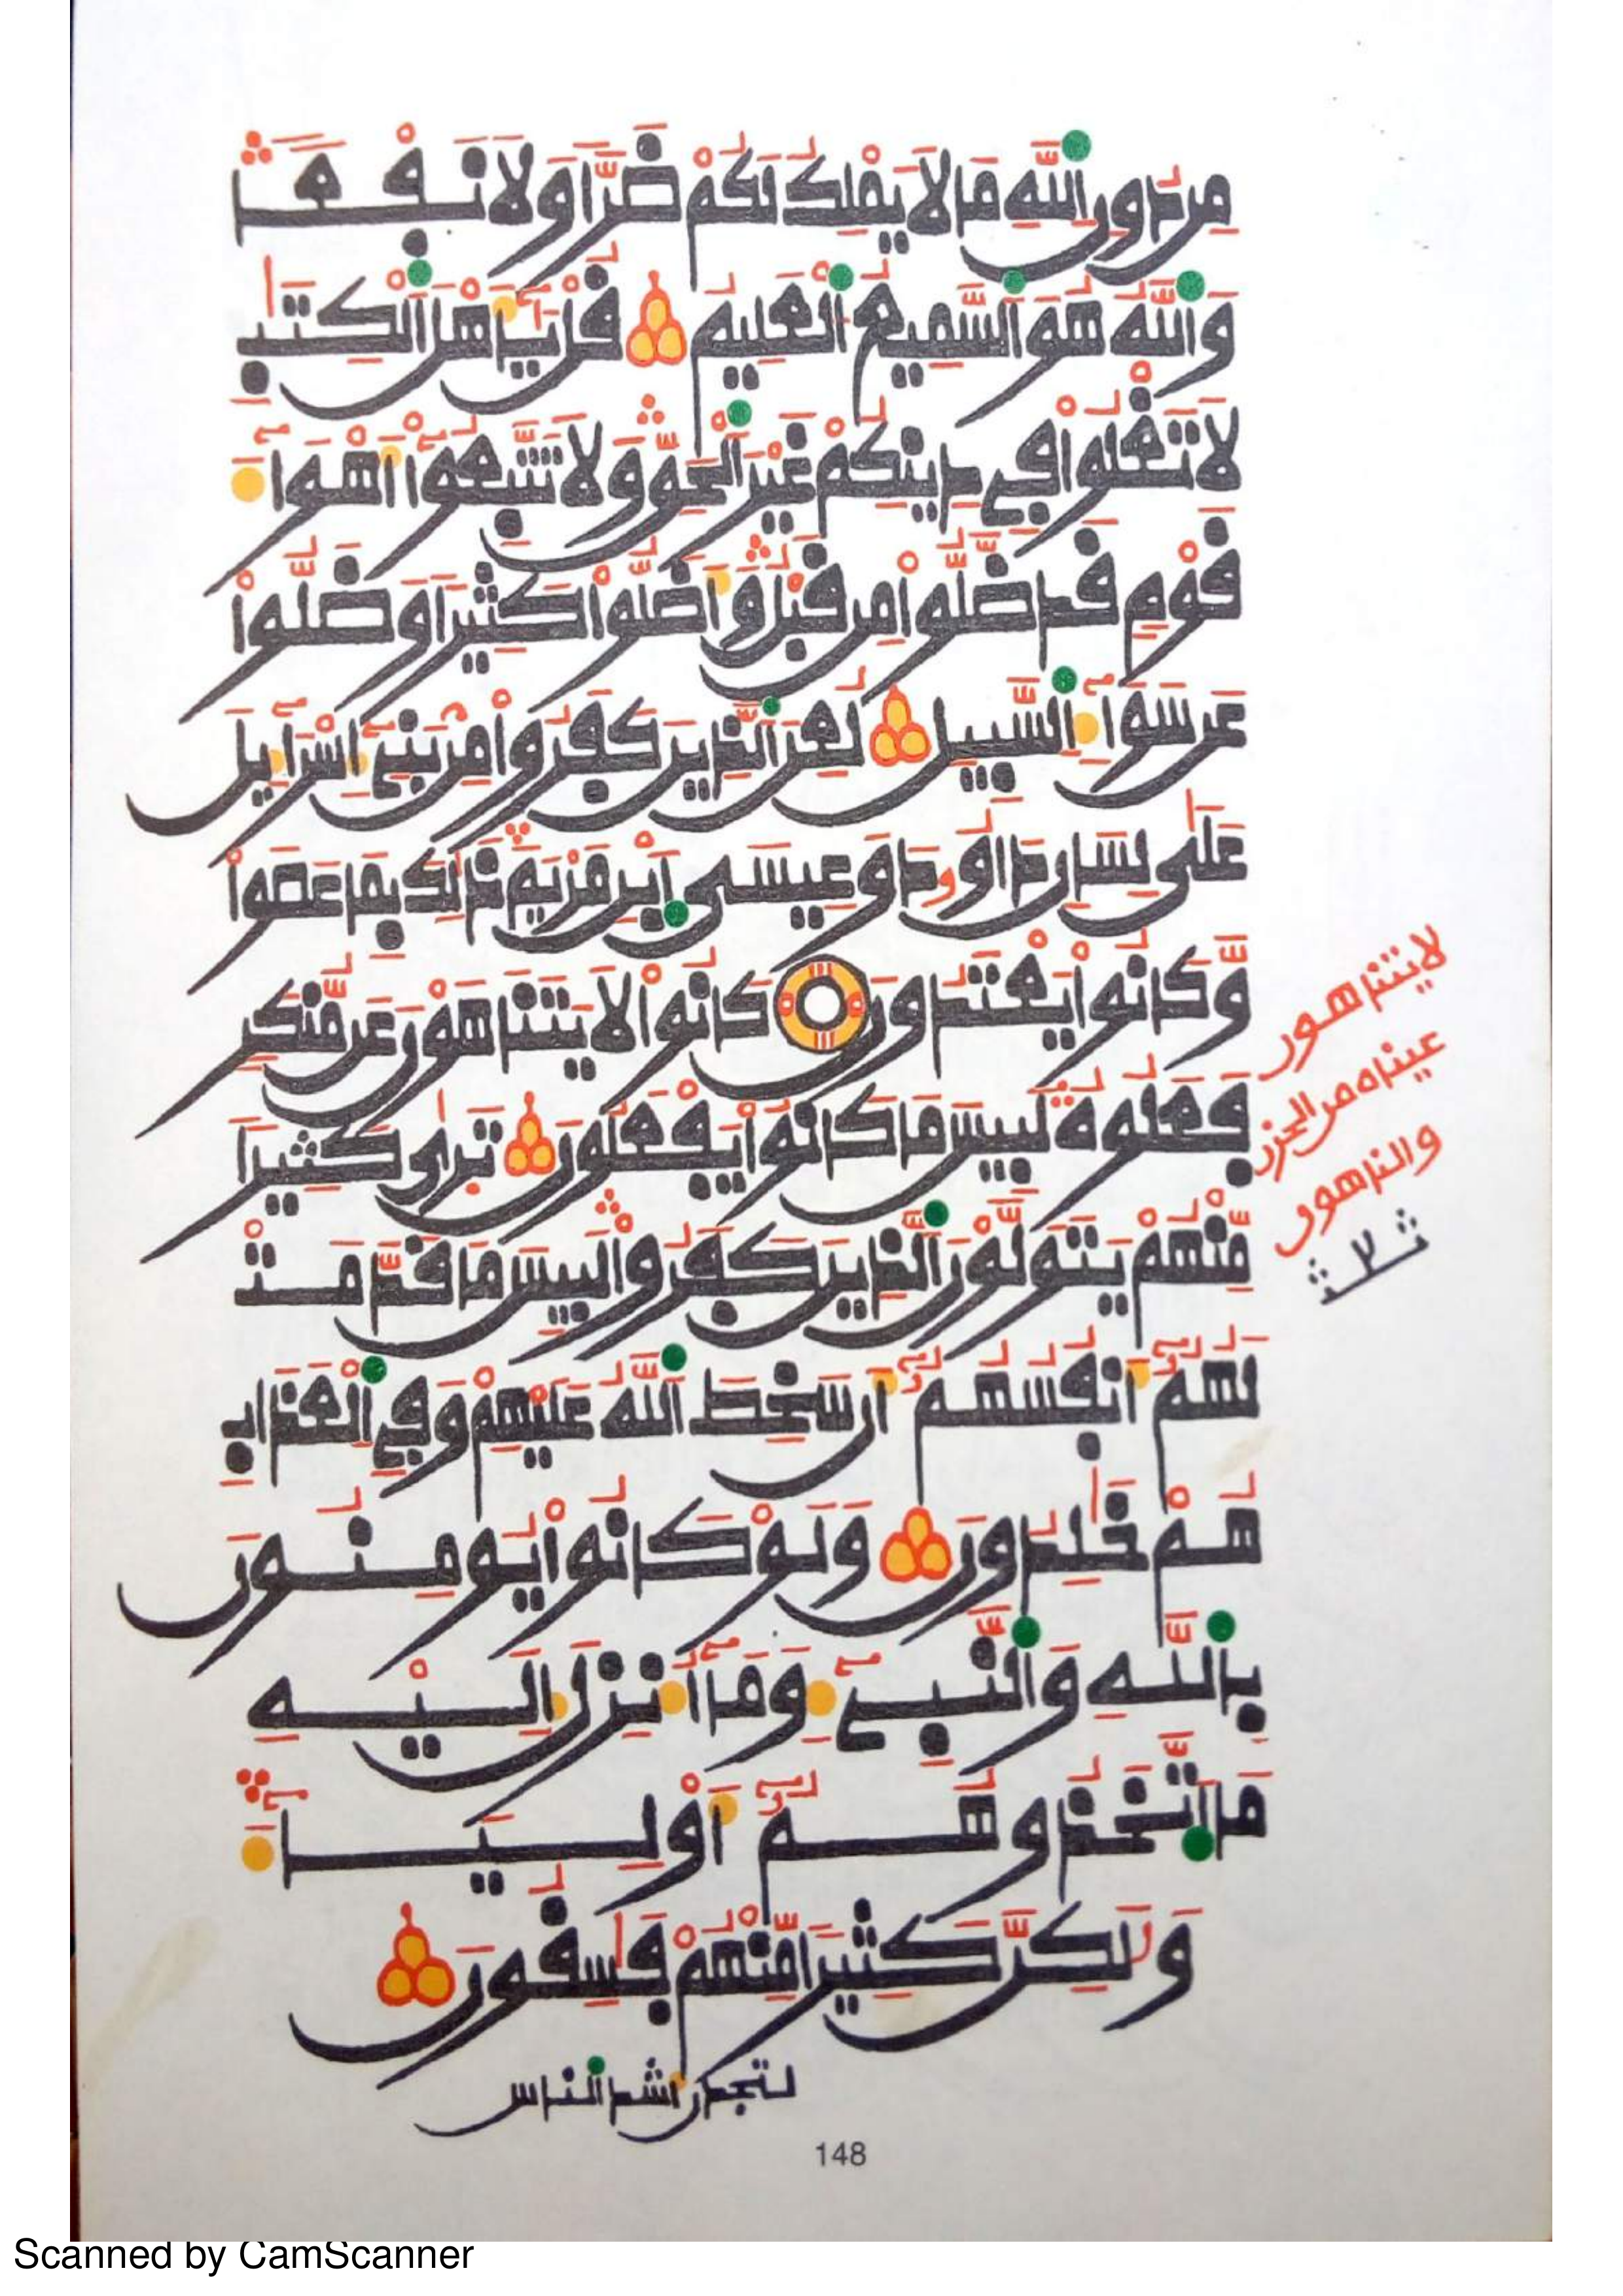 مِن دُونِ اللَّهِ مَا لَا يَمْلِكُ لَكُمْ ضَرًّا وَلَا نَفْعًا
وَاللَّهُ هُوَ السَّمِيعُ الْعَلِيمُ قُلْ يَا أَهْلَ الْكِتَٰبِ
لَا تَغْلُوا فِي دِينِكُمْ غَيْرَ الْحَقِّ وَلَا تَتَّبِعُوا أَهْوَاءَ
قَوْمٍ قَد ضَّلُّوا مِن قَبْلُ وَأَضَلُّوا كَثِيرًا وَضَلُّوا
عَن سَوَاءِ السَّبِيلِ لُعِنَ الَّذِينَ كَفَرُوا مِن بَنِي إِسْرَاءِيلَ
عَلَىٰ لِسَانِ دَاوُودَ وَعِيسَى ابْنِ مَرْيَمَ ذَٰلِكَ بِمَا عَصَوا
وَّكَانُوا يَعْتَدُونَ كَانُوا لَا يَتَنَاهَوْنَ عَن مُّنكَرٍ
فَعَلُوهُ لَبِيسَ مَا كَانُوا يَفْعَلُونَ تَرَىٰ كَثِيرًا
مِّنْهُمْ يَتَوَلَّوْنَ الَّذِينَ كَفَرُوا لَبِيسَ مَا قَدَّمَتْ
لَهُمُ أَنفُسُهُمُ أَن سَخِطَ اللَّهُ عَلَيْهِمْ وَفِي الْعَذَابِ
هُمْ خَٰلِدُونَ وَلَوْ كَانُوا يُومِنُونَ
بِاللَّهِ وَالنَّبِيءِ وَمَا أُنزِلَ إِلَيْهِ
مَا اتَّخَذُوهُمُ أَوْلِيَاءَ
وَلَٰكِنَّ كَثِيرًا مِّنْهُمْ فَٰسِقُونَ
لتجدن أشد الناس
148
لا يتناهون
عيناه من الحزن
والناهون
Scanned by CamScanner